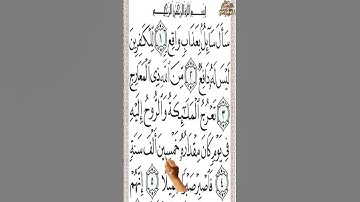 بِسْمِ اللَّهِ الرَّحْمَٰنِ الرَّحِيمِ
سَأَلَ سَائِلٌ بِعَذَابٍ وَاقِعٍ ۝١ لِّلْكَافِرِينَ
لَيْسَ لَهُ دَافِعٌ ۝٢ مِّنَ اللَّهِ ذِي الْمَعَارِجِ
۝٣ تَعْرُجُ الْمَلَائِكَةُ وَالرُّوحُ إِلَيْهِ
فِي يَوْمٍ كَانَ مِقْدَارُهُ خَمْسِينَ أَلْفَ سَنَةٍ
۝٤ فَاصْبِرْ صَبْرًا جَمِيلًا ۝٥ إِنَّهُمْ